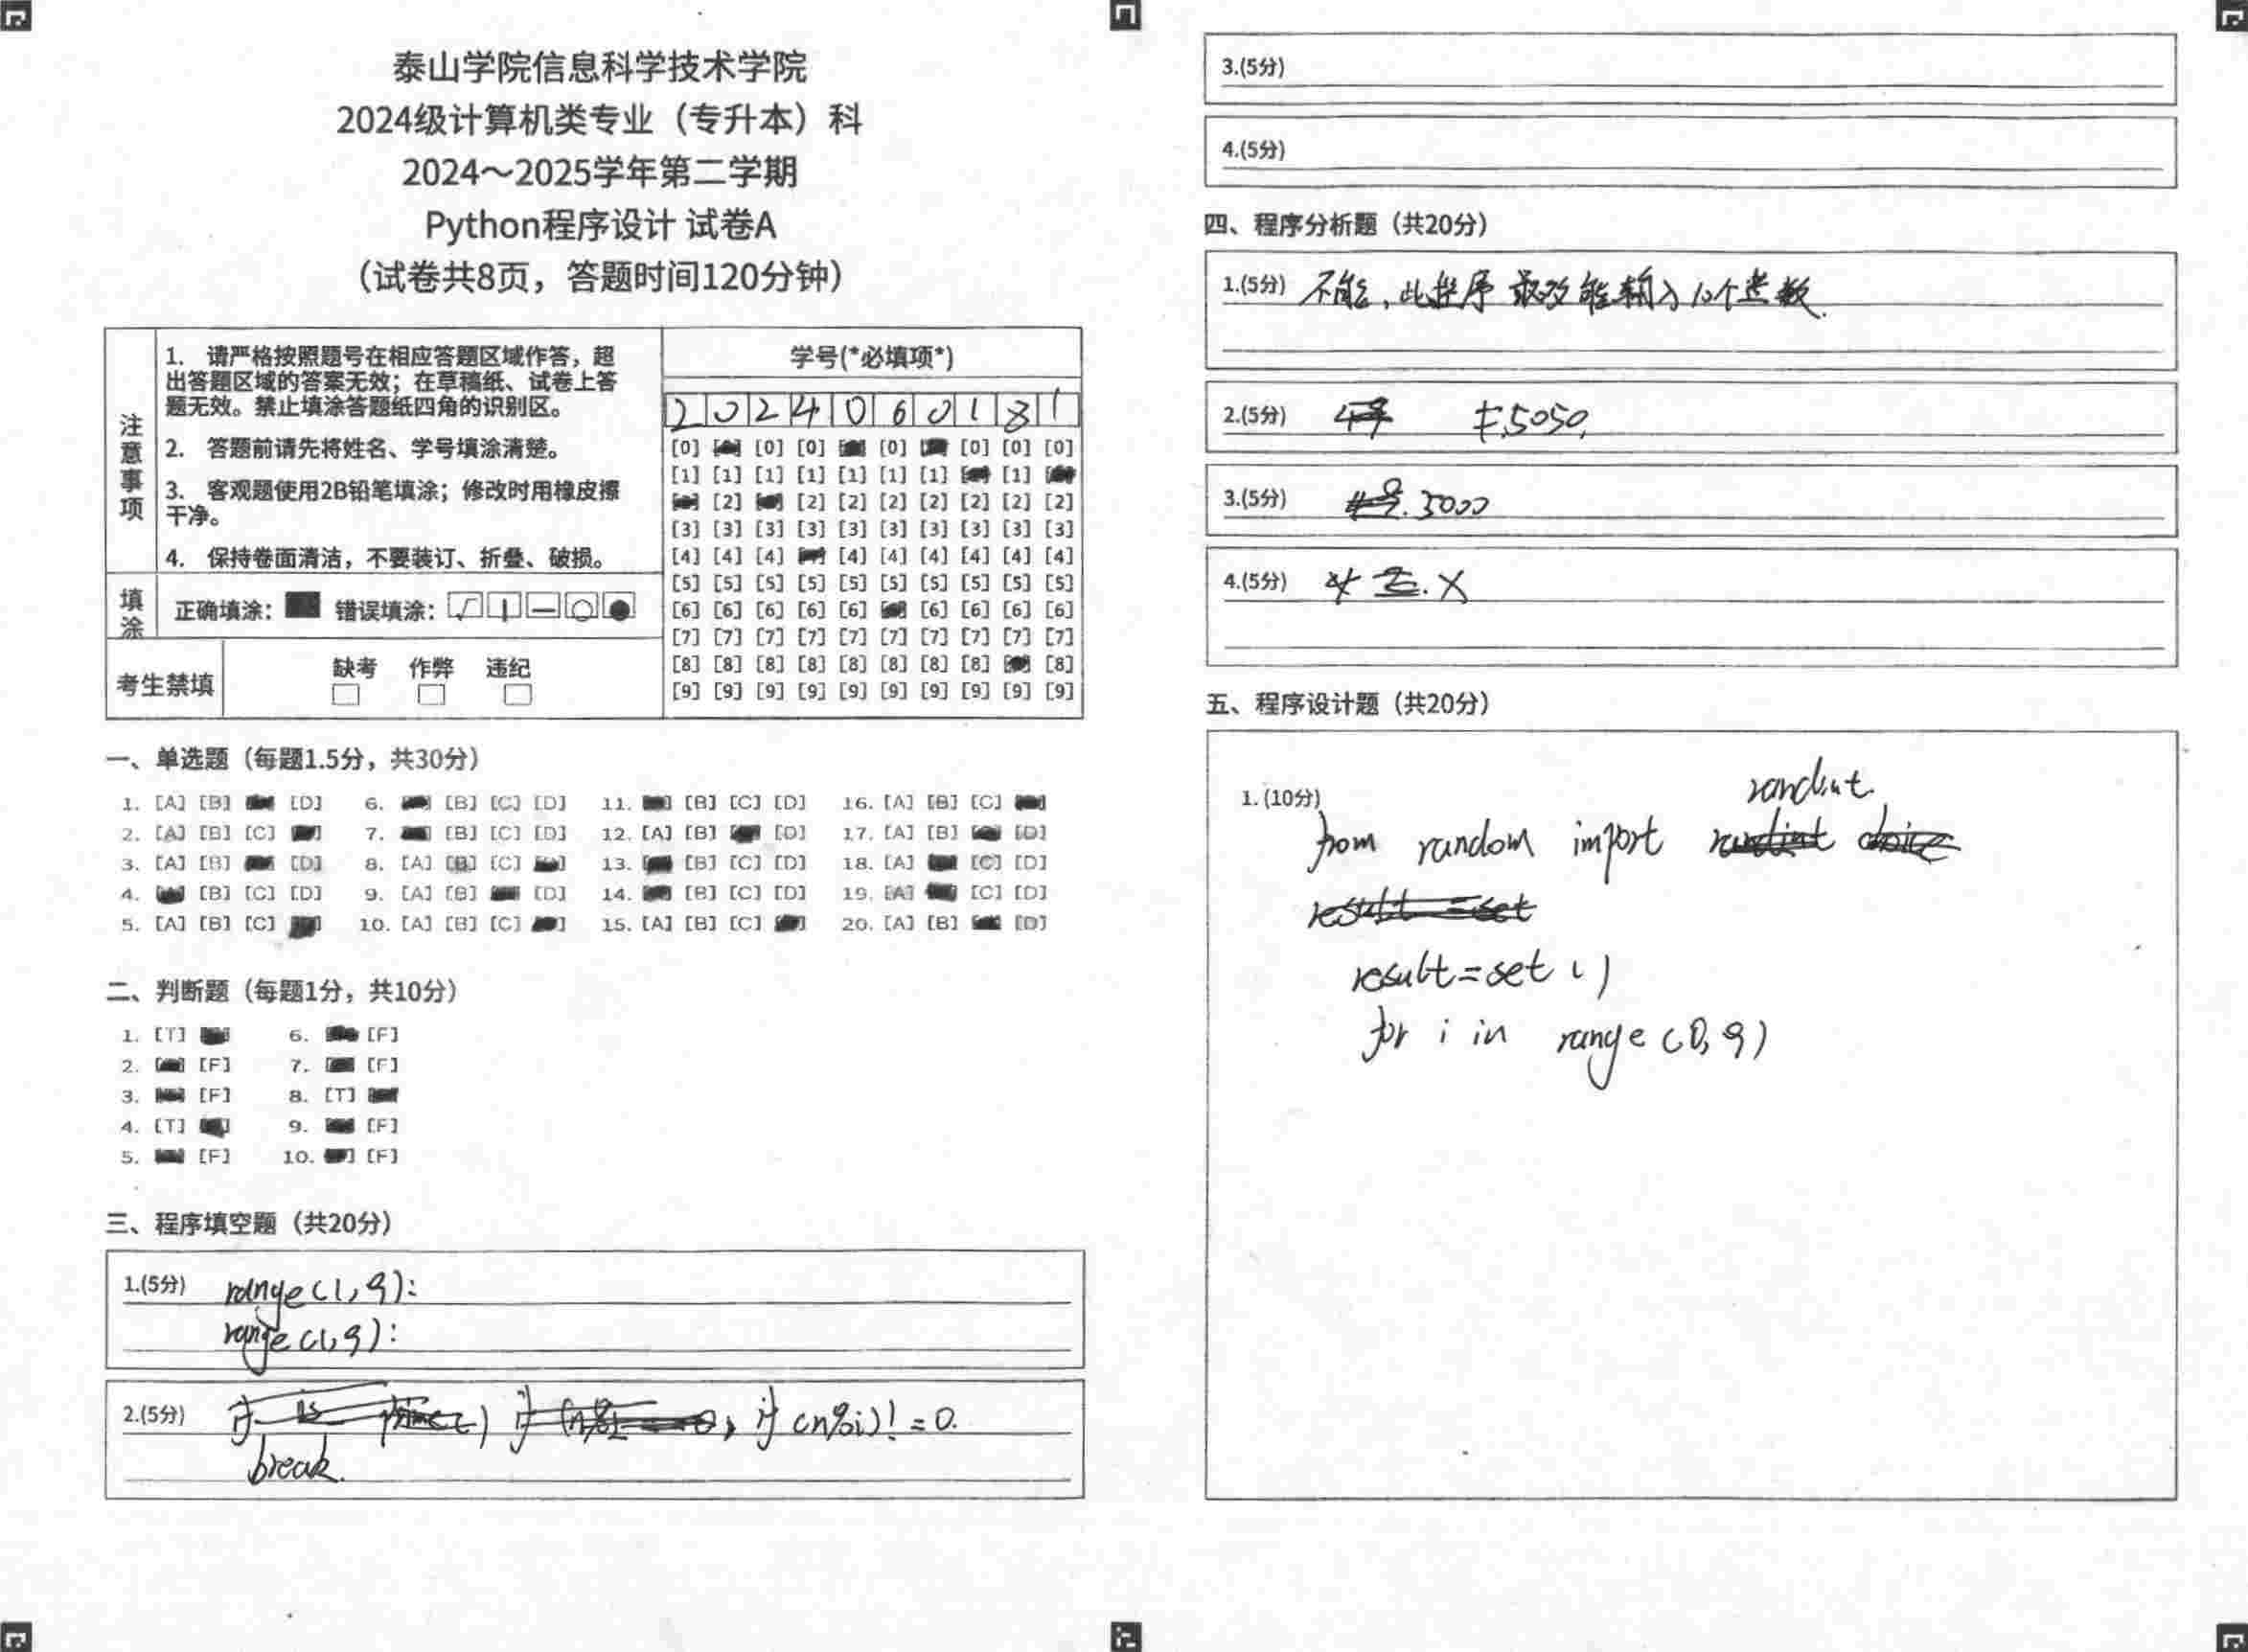 泰山学院信息科学技术学院
2024级计算机类专业（专升本）科
2024～2025学年第二学期
Python程序设计 试卷A
（试卷共8页，答题时间120分钟）
注意事项
1. 请严格按照题号在相应答题区域作答，超
出答题区域的答案无效；在草稿纸、试卷上答
题无效。禁止填涂答题纸四角的识别区。
2. 答题前请先将姓名、学号填涂清楚。
3. 客观题使用2B铅笔填涂；修改时用橡皮擦
干净。
4. 保持卷面清洁，不要装订、折叠、破损。
填涂 正确填涂： 错误填涂：
考生禁填 缺考 作弊 违纪
学号(*必填项*)
2 0 2 4 0 6 0 1 8 1
[0] [0] [0] [0] [0] [0] [0]
[1] [1] [1] [1] [1] [1] [1] [1]
[2] [2] [2] [2] [2] [2] [2] [2]
[3] [3] [3] [3] [3] [3] [3] [3] [3] [3]
[4] [4] [4] [4] [4] [4] [4] [4] [4]
[5] [5] [5] [5] [5] [5] [5] [5] [5] [5]
[6] [6] [6] [6] [6] [6] [6] [6] [6]
[7] [7] [7] [7] [7] [7] [7] [7] [7] [7]
[8] [8] [8] [8] [8] [8] [8] [8] [8]
[9] [9] [9] [9] [9] [9] [9] [9] [9] [9]
一、单选题（每题1.5分，共30分）
1. [A] [B] [D] 6. [B] [C] [D] 11. [B] [C] [D] 16. [A] [B] [C]
2. [A] [B] [C] 7. [B] [C] [D] 12. [A] [B] [D] 17. [A] [B] [D]
3. [A] [B] [D] 8. [A] [B] [C] 13. [B] [C] [D] 18. [A] [C] [D]
4. [B] [C] [D] 9. [A] [B] [D] 14. [B] [C] [D] 19. [A] [C] [D]
5. [A] [B] [C] 10. [A] [B] [C] 15. [A] [B] [C] 20. [A] [B] [D]
二、判断题（每题1分，共10分）
1. [T] 6. [F]
2. [F] 7. [F]
3. [F] 8. [T]
4. [T] 9. [F]
5. [F] 10. [F]
三、程序填空题（共20分）
1.(5分) range(1,9):
range(1,9):
2.(5分) if (n%i)!=0.
break.
3.(5分)
4.(5分)
四、程序分析题（共20分）
1.(5分) 不能，此程序 最多能输入10个整数.
2.(5分) 5050.
3.(5分) 5000
4.(5分)
五、程序设计题（共20分）
1.(10分)
randint.
from random import
result=set()
for i in range(0,9)